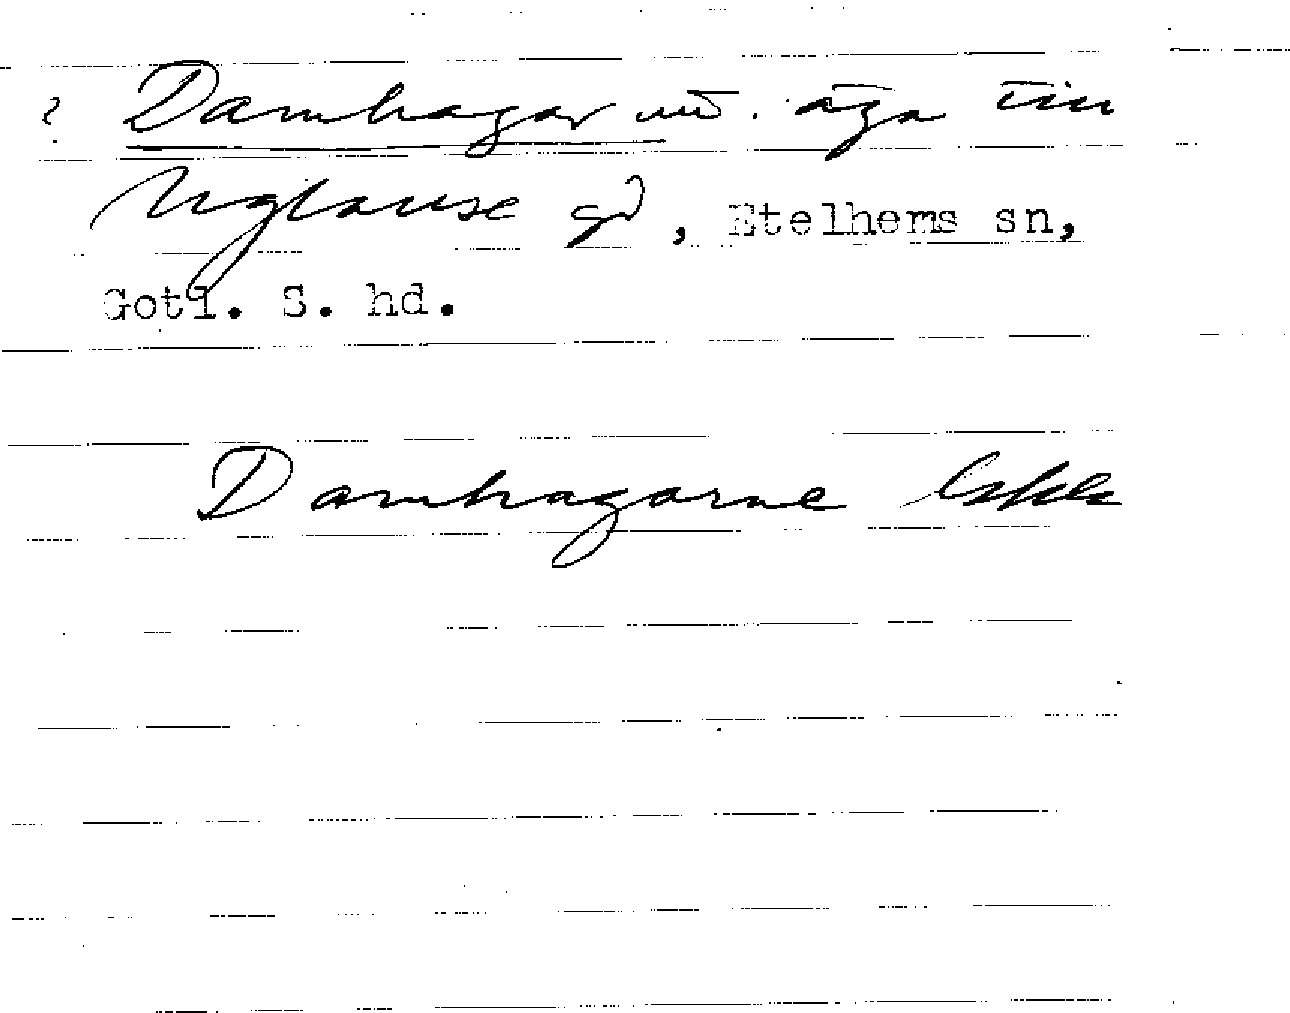 ? Damhagar äga till
Uglause gd, Etelhems sn,
Gotl. S. hd.
Damhagarne